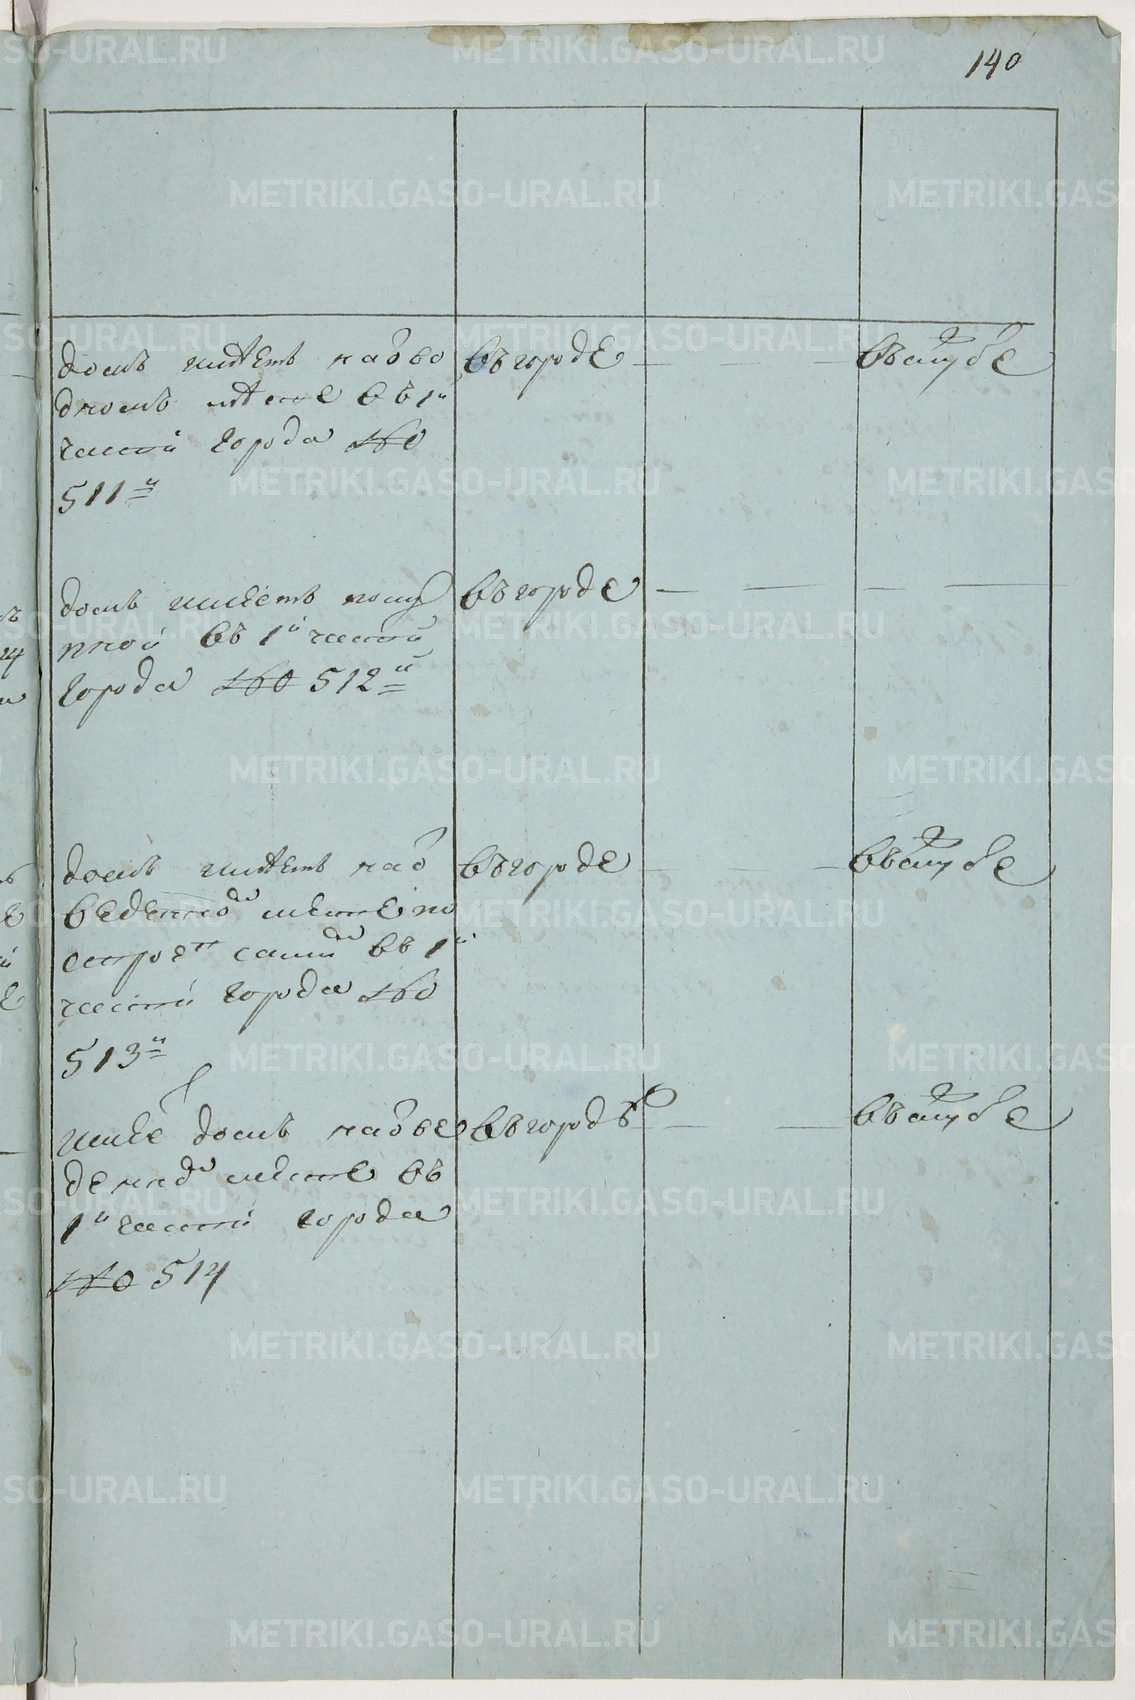 140
домъ имѣетъ наотво
дномъ мѣсте въ 1й
части города №
511й
въ городе
въслужбе
домъ имѣетъ поку
пной въ 1й части
города № 512й
въ городе
домъ имѣетъ на от
веденном месте по
строен самим въ 1й
части города №
513й
въ городе
въслужбе
имѣет домъ на отве
денном мѣсте въ
1й части города
№ 514
въ городѣ
въслужбе
METRIKI.GASO-URAL.RU